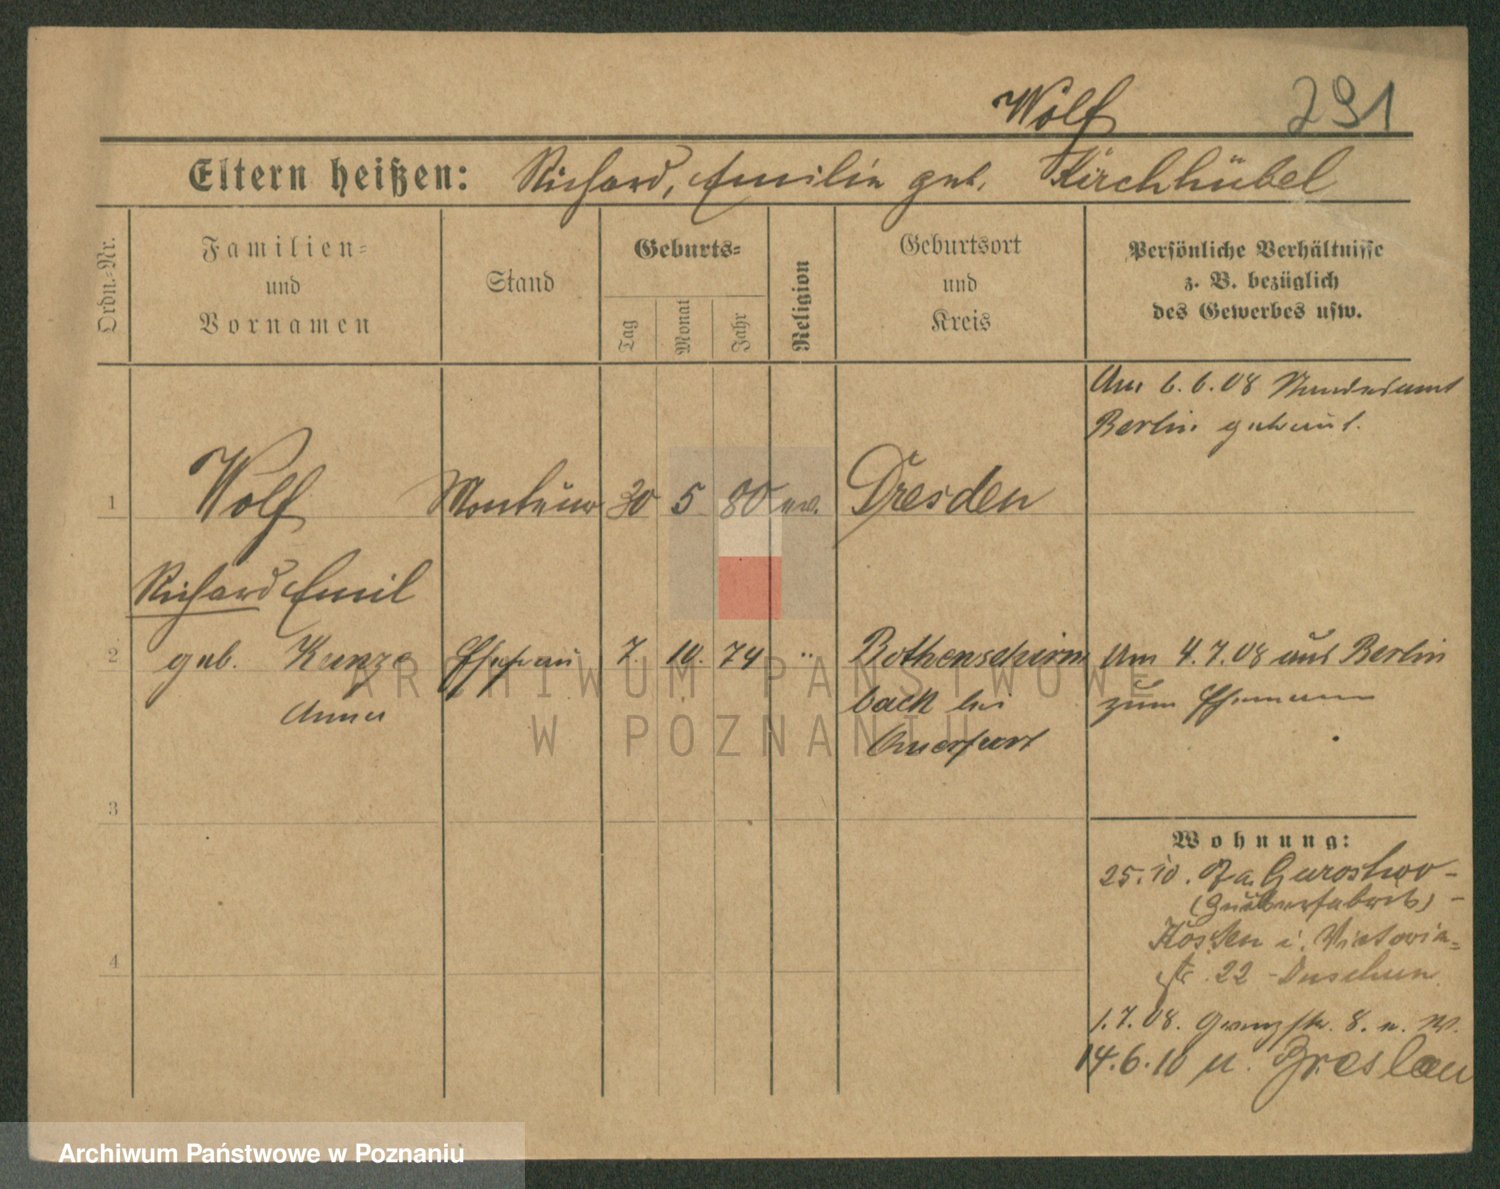 Wolf 291
Eltern heißen: Richard, Emilie geb. Kirchhübel
Ordn.-Nr.
Familien-
und
Vornamen
Stand
Geburts-
Tag
Monat
Jahr
Religion
Geburtsort
und
Kreis
Persönliche Verhältnisse
z. B. bezüglich
des Gewerbes usw.
Am 6.6.08 Standesamt
Berlin getraut.
1 Wolf Monteur 30 5 80 ev. Dresden
Richard Emil
2 geb. Kunze Ehefrau 7. 10. 74 " Bothenschirm
Anna
bach bei
Querfurt
Am 4.7.08 aus Berlin
zum Ehemann
3
4
Wohnung:
25.10. Gurostwo-
(Zuckerfabrik) -
i. Victoria=
str. 22
1.7.08. 8. n. W.
14.6.10 n. Breslau
ARCHIWUM PAŃSTWOWE
W POZNANIU
Archiwum Państwowe w Poznaniu